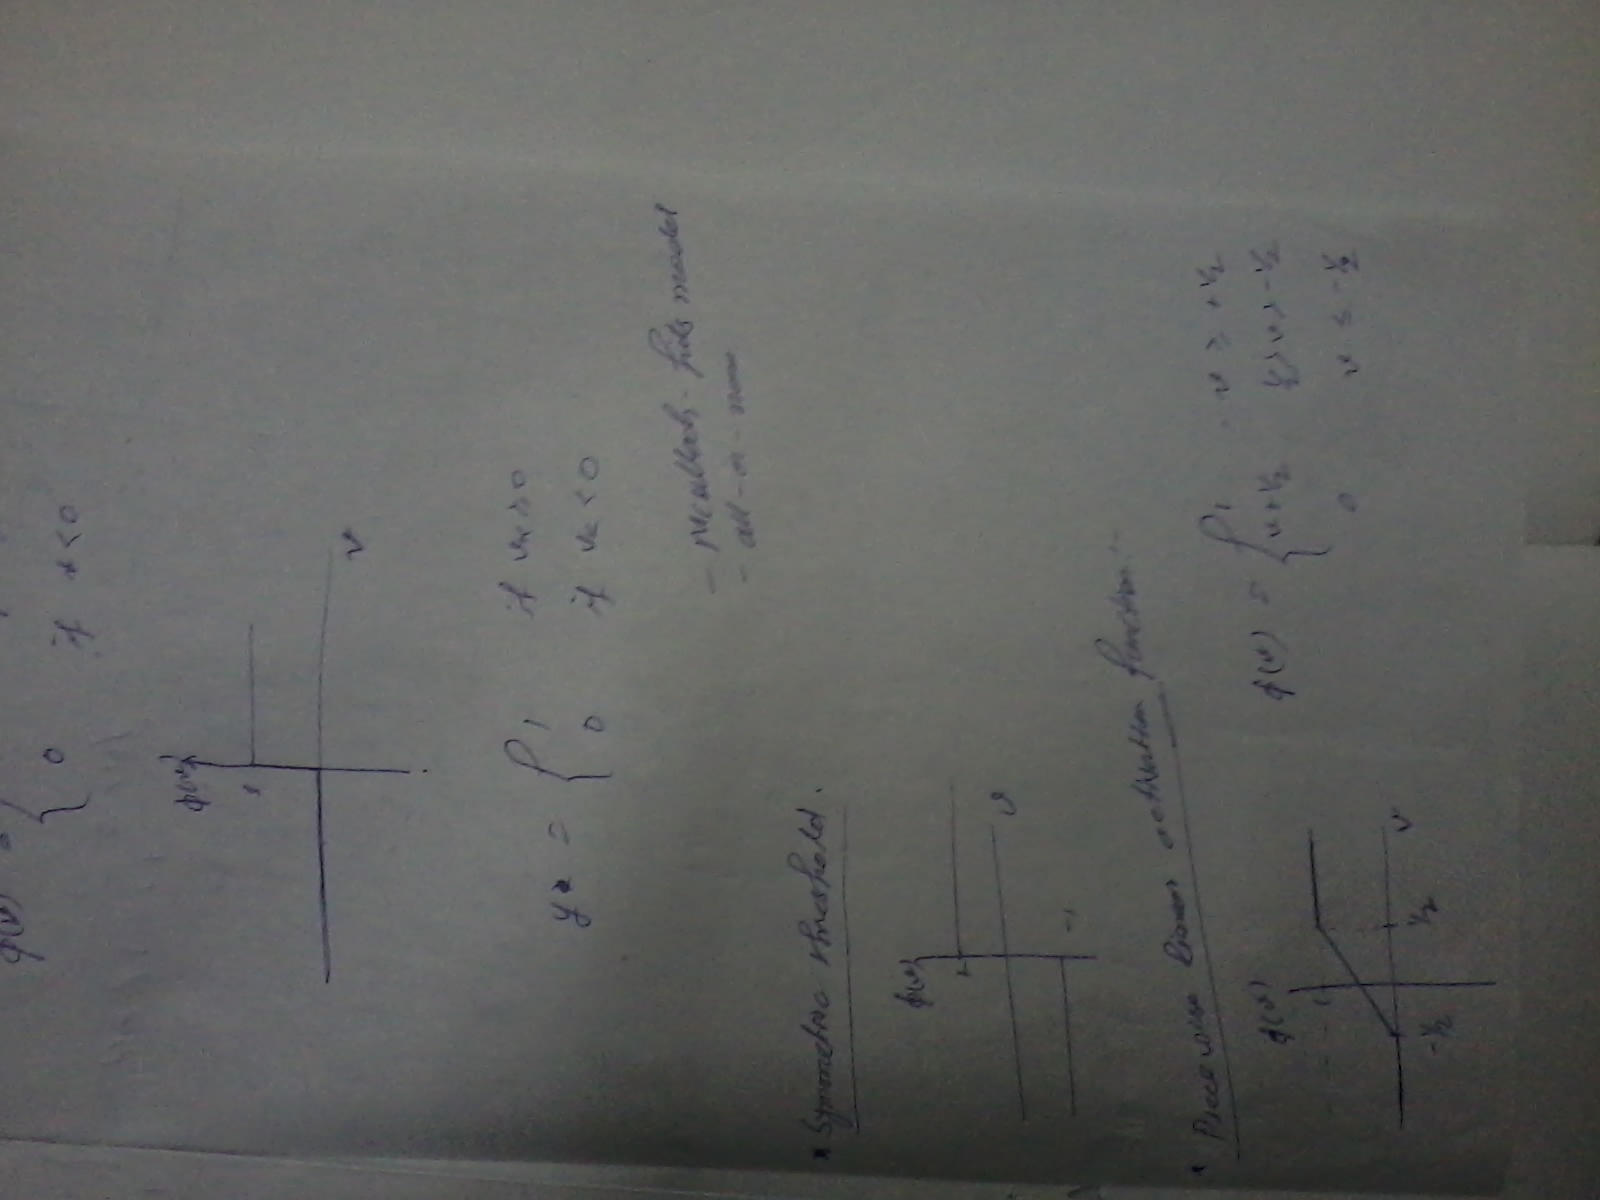 φ(v) = {
0 if v < 0
φ(v)
1
v
yk = { 1 if vk ≥ 0
0 if vk < 0
- McCulloch-Pitts model
- all-or-none
* Symmetric threshold.
φ(v)
1
v
-1
* Piecewise linear activation function:-
φ(v)
1
-1/2
1/2
v
φ(v) = { 1 v ≥ +1/2
v+1/2 1/2 > v > -1/2
0 v ≤ -1/2